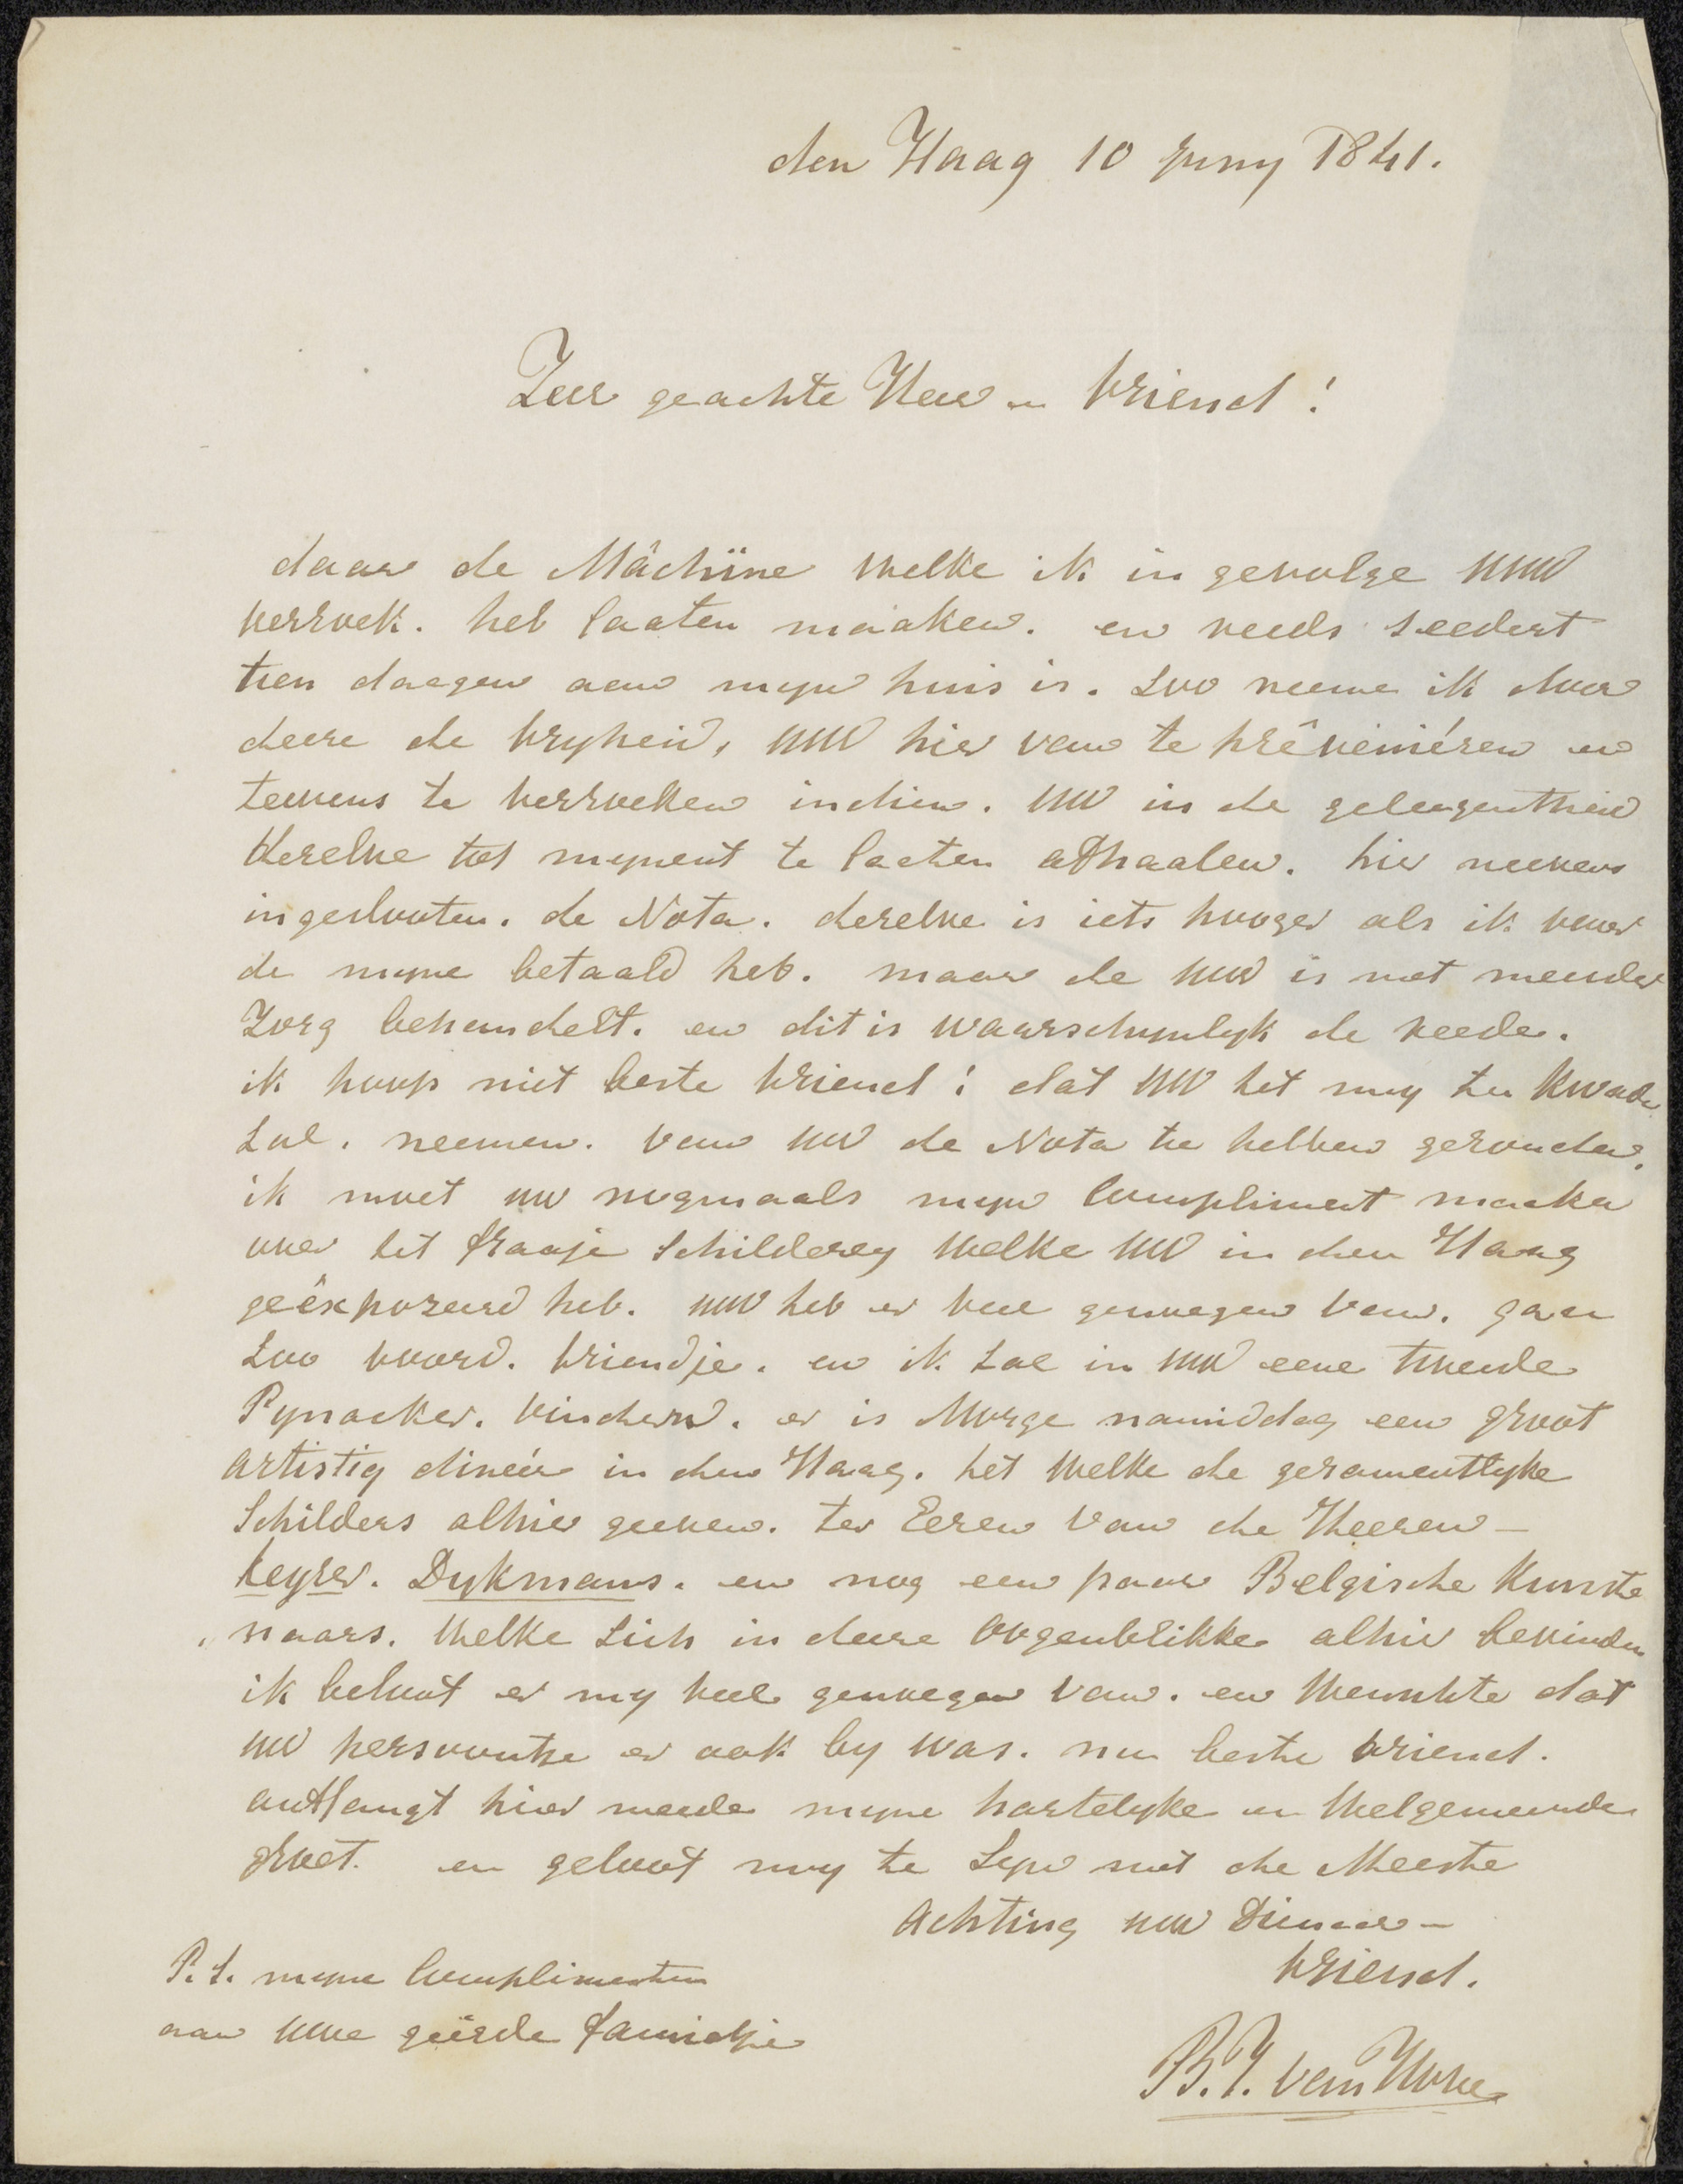 den Haag 10 Juny 1841.
Zeer geachte Heer en vriend!
daar de Mâchïne welke ik in gevolge UUW
verzoek. heb laaten maaken. en reeds seedert
tien daagen aan myn huis is. zoo neeme ik door
deeze de vryheid, UUW hier van te prêveniéren en
teevens te verzoeken indien. UW in de geleegentheid
dezelve tot mynent te laaten afhaalen. hier neevens
ingeslooten. de Nota. dezelve is iets hooger als ik voor
de myne betaald heb. maar de UUW is met meerder
Zorg behandelt. en dit is waarschynlyk de reede.
ik hoop niet beste vriend! dat UW het my ten kwade
zal. neemen. van UW de Nota te hebben gezonden.
ik moet uw nogmaals myn Compliment maaken
over het fraaje Schilderey welke UW in den Haag
geëxposeerd heb. UUW heb er veel genoegen van. gaa
zoo voord. vriendje. en ik zal in UUW eene tweede
Pynacker. vinden. er is Morge namiddag een groot
artistig dineér in den Haag. het welke de gezamentlyke
Schilders alhier geeven. ter Eeren van de Heeren –
Keyser. Dykmans. en nog een paar Belgische Kunste
„ naars. welke zich in deeze oogenblikke alhier bevinden
ik beloot er my veel genoegen van. en wenschte dat
uw persoontje er ook by was. nu beste vriend.
antfangt hier meede myne hartelyke en welgemeende
groet. en geloof my te zyn met de Meeste
achting uw Dienaar –
vriend.
P.S. myne Complimenten
aan uwe geëerde famielje
B.J. van Hove